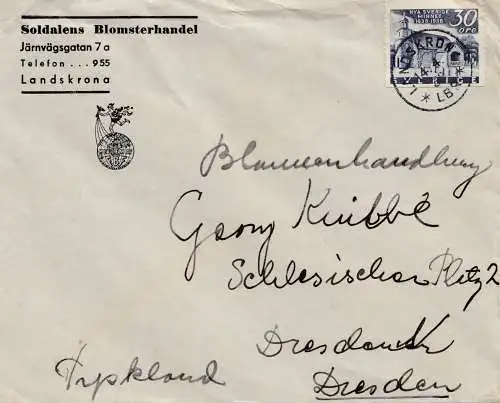 Soldalens Blomsterhandel
Järnvägsgatan 7 a
Telefon . . . 955
Landskrona
NYA SVERIGE
MINNET
1638-1938
30
ÖRE
LANDSKRONA
LBR
Blumenhandlung
Georg Knibbe
Schlesischer Platz 2
Dresden
Tyskland
Dresden